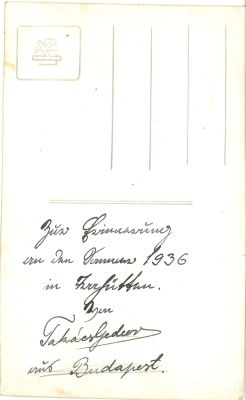 Zur Erinnerung
an den Sommer 1936
in Zerhütten.
Von
Takács Gedeon
aus Budapest.